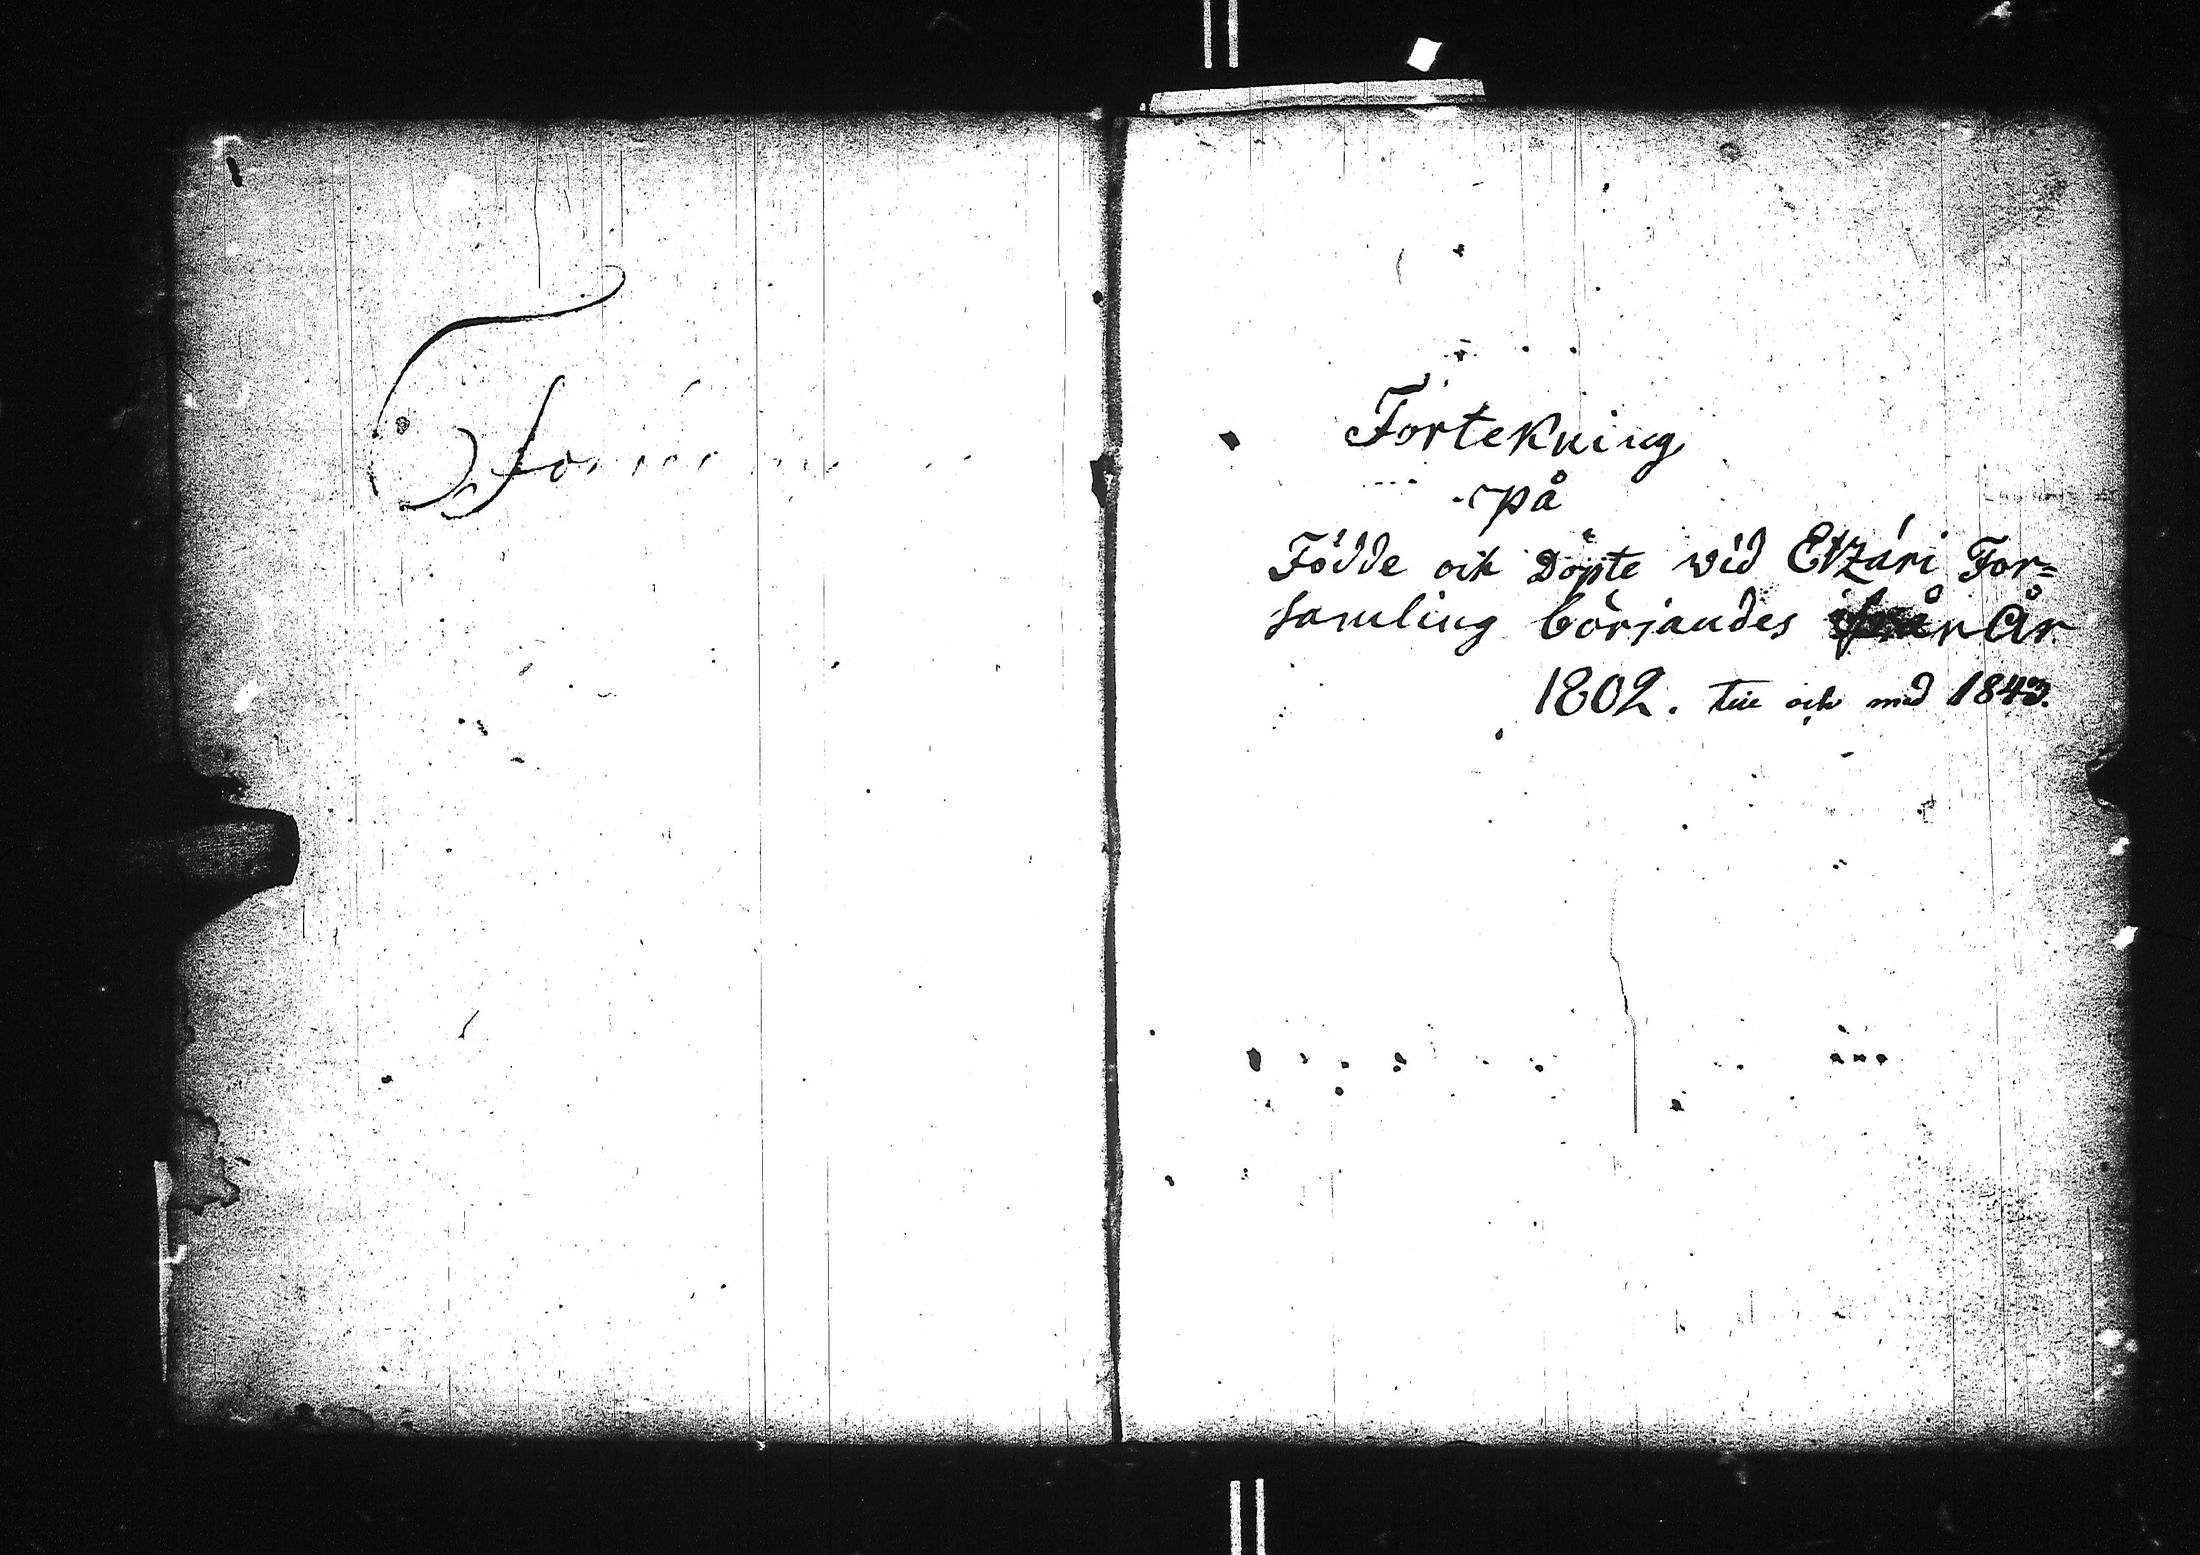 Fortekning
på
Födde och Döpte wid Etzäri För=
samling börjandes från År
1802. till och med 1843.